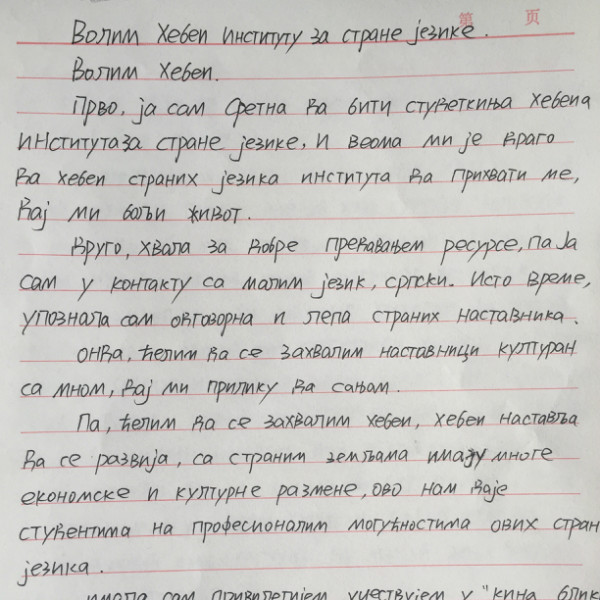 第 页
Волим Хебеи институту за стране језике.
Волим Хебеи.
Прво, ја сам сретна да бити студеткиња хебеиа
института за стране језике, и веома ми је драго
да хебеи страних језика института да прихвати ме,
дај ми бољи живот.
Друго, хвала за добре предавањем ресурсе, па ја
сам у контакту са малим језик, српски. Исто време,
упознала сам одговорна и лепа страних наставника.
онда, ћелим да се захвалим наставници културан
са мном, дај ми прилику да сањам.
Па, ћелим да се захвалим хебеи, хебеи наставља
да се развија, са страним земљама имају многе
економске и културне размене, ово нам даје
студентима на професионалим могућностима ових стран
језика.
имала сам привилегијем учествујем у "кина